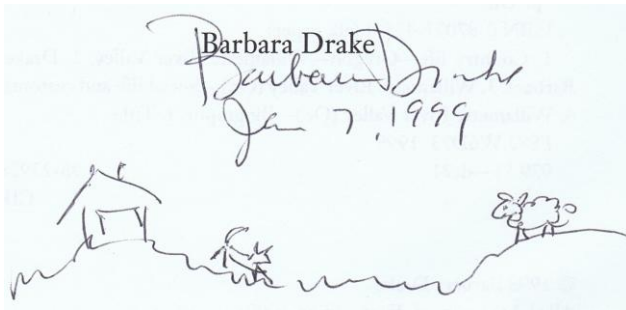 Barbara Drake
Barbara Drake
Jan 7, 1999